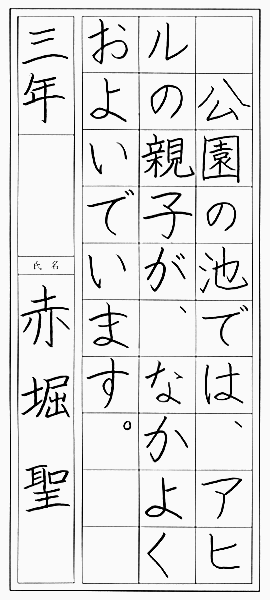 公園の池では、アヒ
ルの親子が、なかよく
およいでいます。
三年
氏名
赤堀 聖